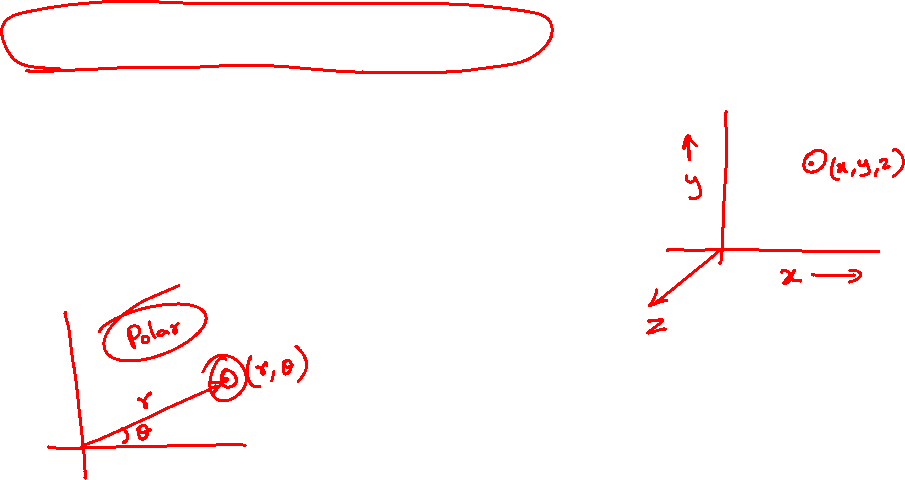 y
(x, y, z)
x
z
Polar
(r, θ)
r
θ